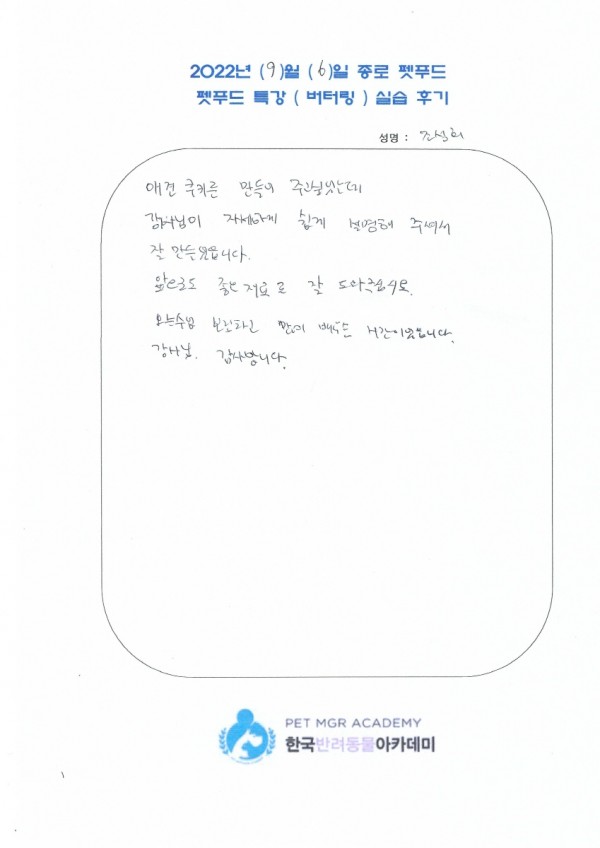 2022년 (9)월 (6)일 종로 펫푸드
펫푸드 특강 ( 버터링 ) 실습 후기
성명 : 조성희
애견 쿠키를 만들어
강사님이 자세하게 쉽게 설명해 주셔서
잘 만들었습니다.
앞으로도 좋은 재료로 잘
오늘수업 보람차고 많이 배우는 시간이었습니다.
강사님. 감사합니다.
PET MGR ACADEMY
한국반려동물아카데미